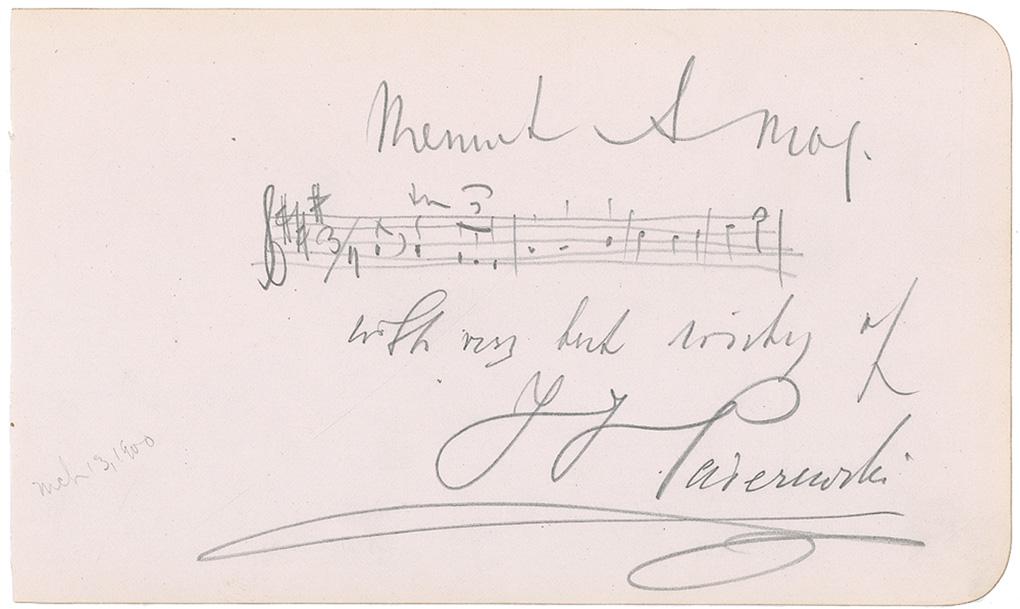 Menuet A maj.
with very best wishes of
I J Paderewski
mch 13, 1900